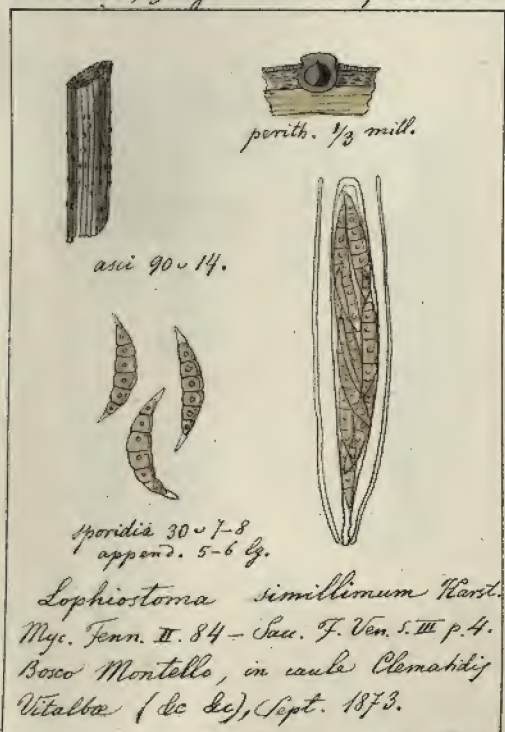 perith. 1/3 mill.
asci 90 ᴗ 14.
sporidia 30 ᴗ 7-8
append. 5-6 lg.
Lophiostoma simillimum Karst.
Myc. Fenn. II. 84 - Sacc. F. Ven. S. III p. 4.
Bosco Montello, in caule Clematidis
Vitalbæ (&c &c), Sept. 1873.